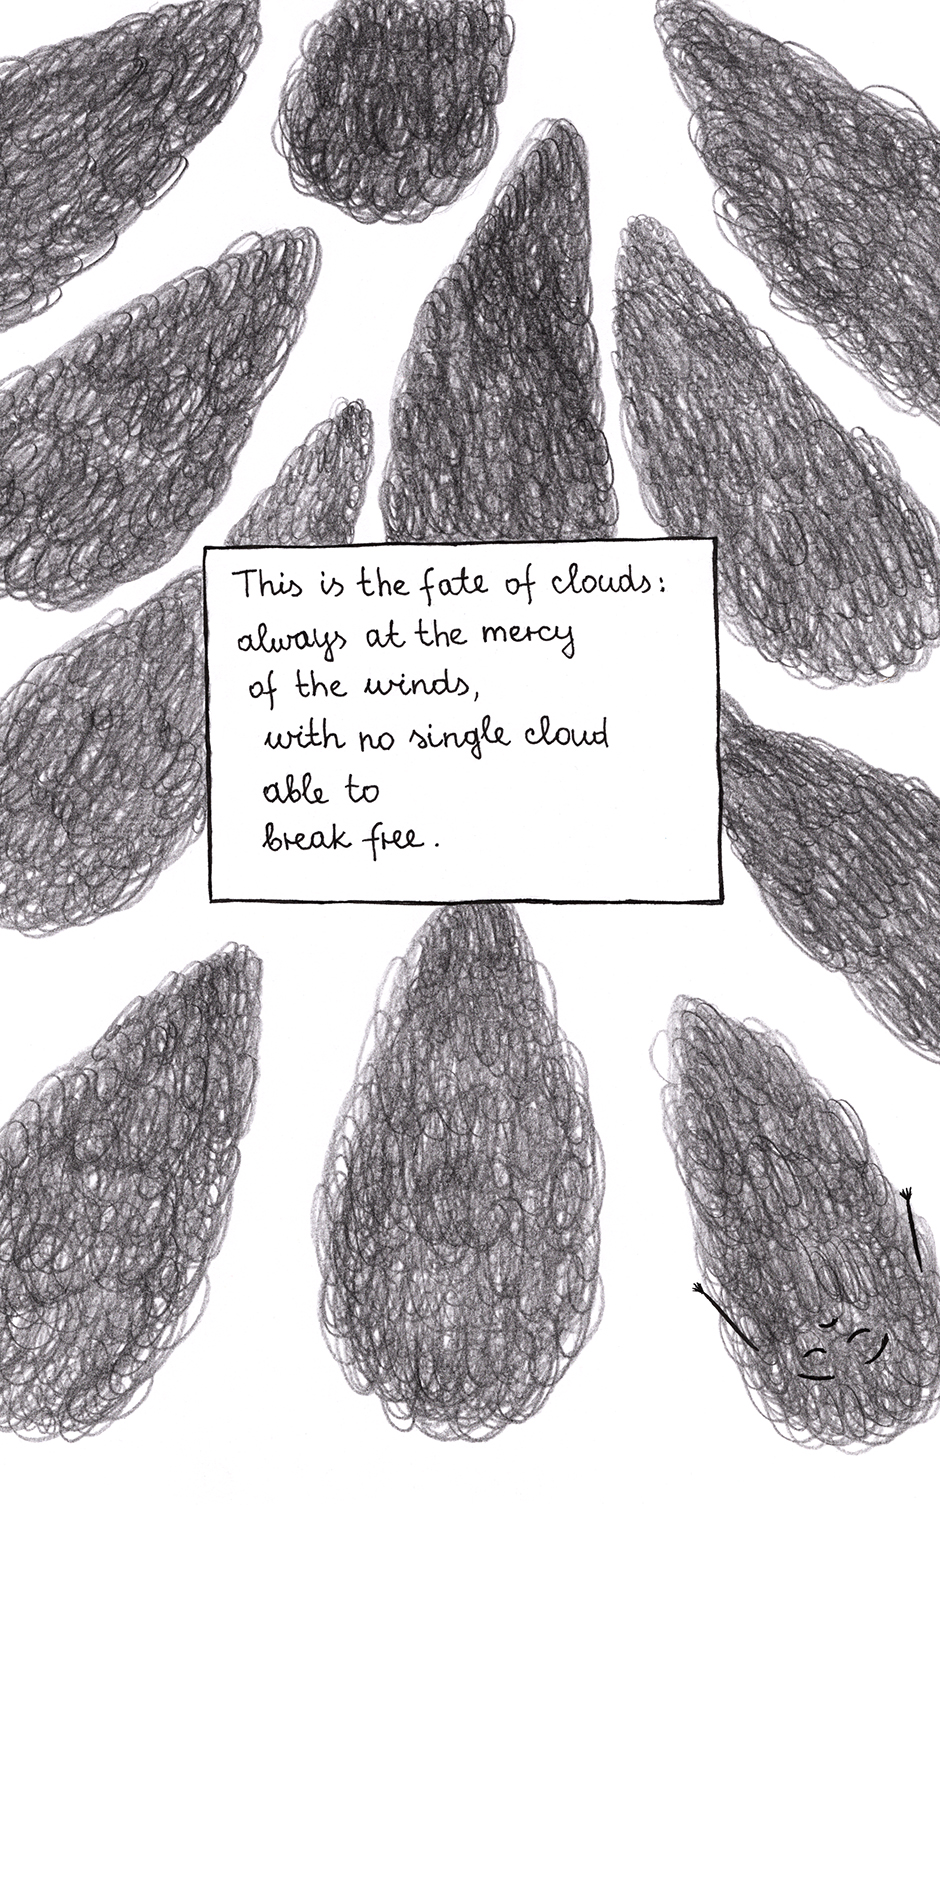 This is the fate of clouds:
always at the mercy
of the winds,
with no single cloud
able to
break free.